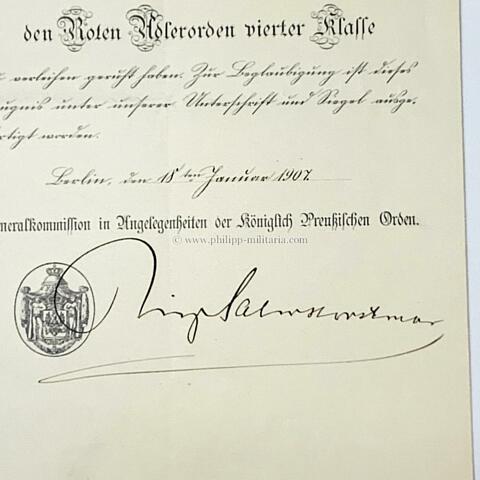 den Roten Adlerorden vierter Klasse
verleihen geruht haben. Zur Beglaubigung ist dieses
eugnis unter unserer Unterschrift und Siegel ausge,
rtigt worden.
Berlin, den 18ten Januar 1907.
neralkommission in Angelegenheiten der Königlich Preußischen Orden.
© www.philipp-militaria.com